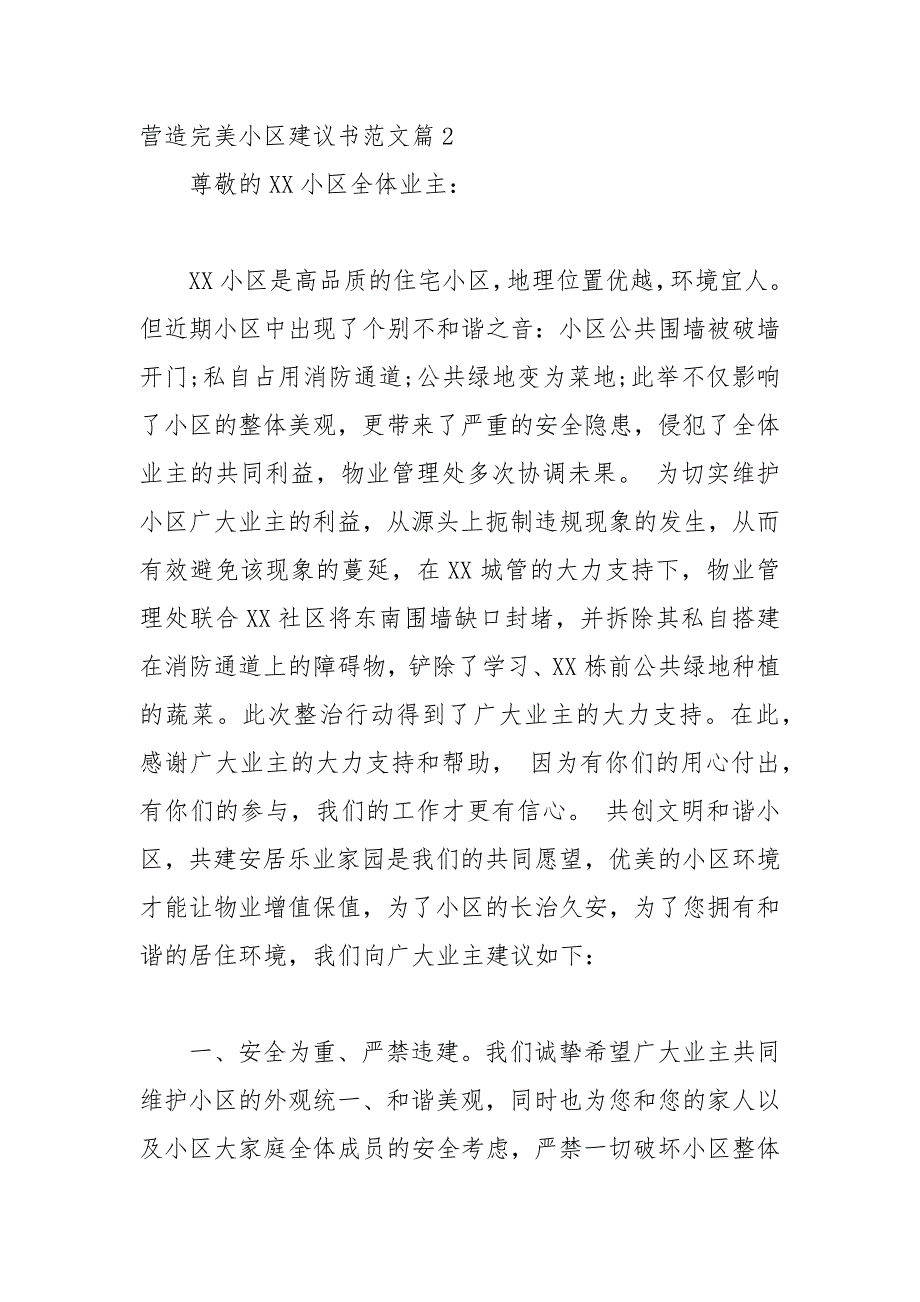 营造完美小区建议书范文篇2
尊敬的XX小区全体业主：
XX小区是高品质的住宅小区，地理位置优越，环境宜人。
但近期小区中出现了个别不和谐之音：小区公共围墙被破墙
开门;私自占用消防通道;公共绿地变为菜地;此举不仅影响
了小区的整体美观，更带来了严重的安全隐患，侵犯了全体
业主的共同利益，物业管理处多次协调未果。 为切实维护
小区广大业主的利益，从源头上扼制违规现象的发生，从而
有效避免该现象的蔓延，在XX城管的大力支持下，物业管
理处联合XX社区将东南围墙缺口封堵，并拆除其私自搭建
在消防通道上的障碍物，铲除了学习、XX栋前公共绿地种植
的蔬菜。此次整治行动得到了广大业主的大力支持。在此，
感谢广大业主的大力支持和帮助， 因为有你们的用心付出，
有你们的参与，我们的工作才更有信心。 共创文明和谐小
区，共建安居乐业家园是我们的共同愿望，优美的小区环境
才能让物业增值保值，为了小区的长治久安，为了您拥有和
谐的居住环境，我们向广大业主建议如下：
一、安全为重、严禁违建。我们诚挚希望广大业主共同
维护小区的外观统一、和谐美观，同时也为您和您的家人以
及小区大家庭全体成员的安全考虑，严禁一切破坏小区整体